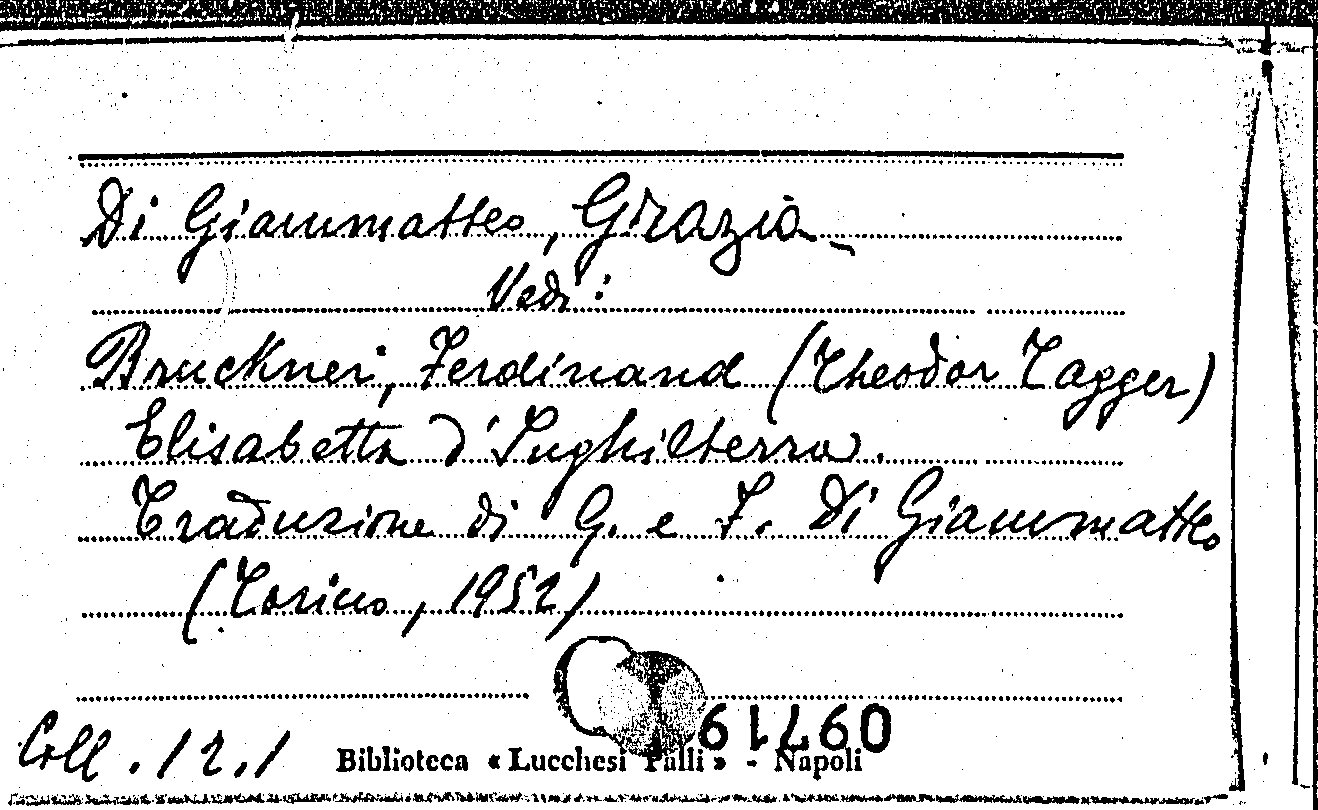 Di Giammatteo, Grazia -
Vedi:
Bruckner, Ferdinand (Theodor Tagger)
Elisabetta d'Inghilterra.
Traduzione di G. e F. Di Giammatteo
(Torino, 1952)
Coll. 12.1
Biblioteca « Lucchesi Palli » - Napoli